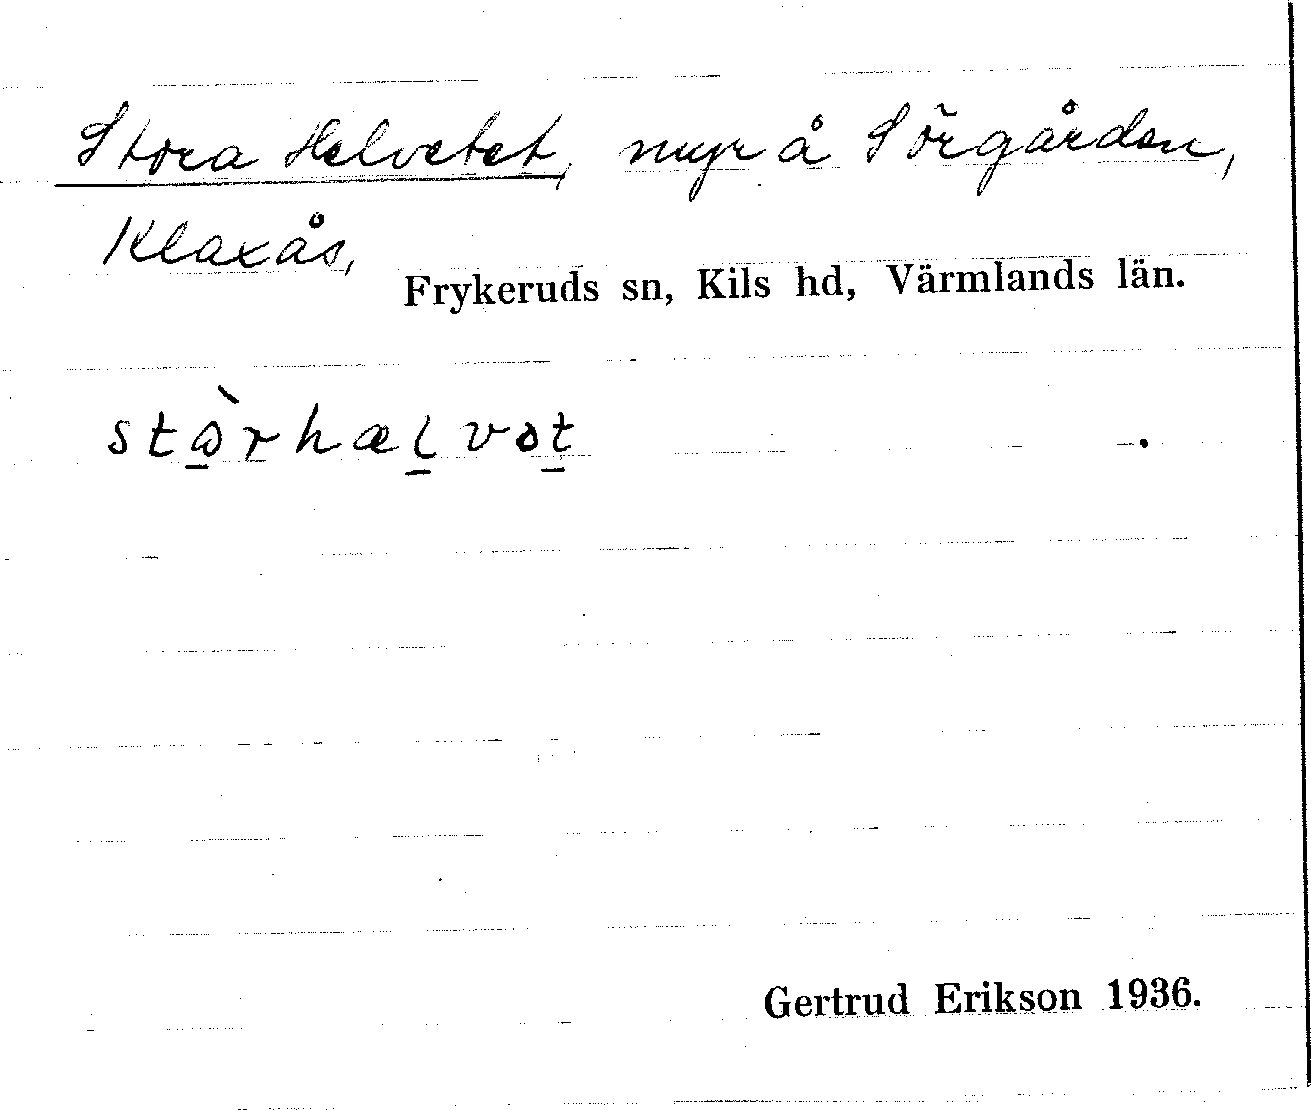 Stora Helvetet, myr å Sörgården,
Klaxås,
Frykeruds sn, Kils hd, Värmlands län.
stὼ̠rhæl̠vət̠
Gertrud Erikson 1936.